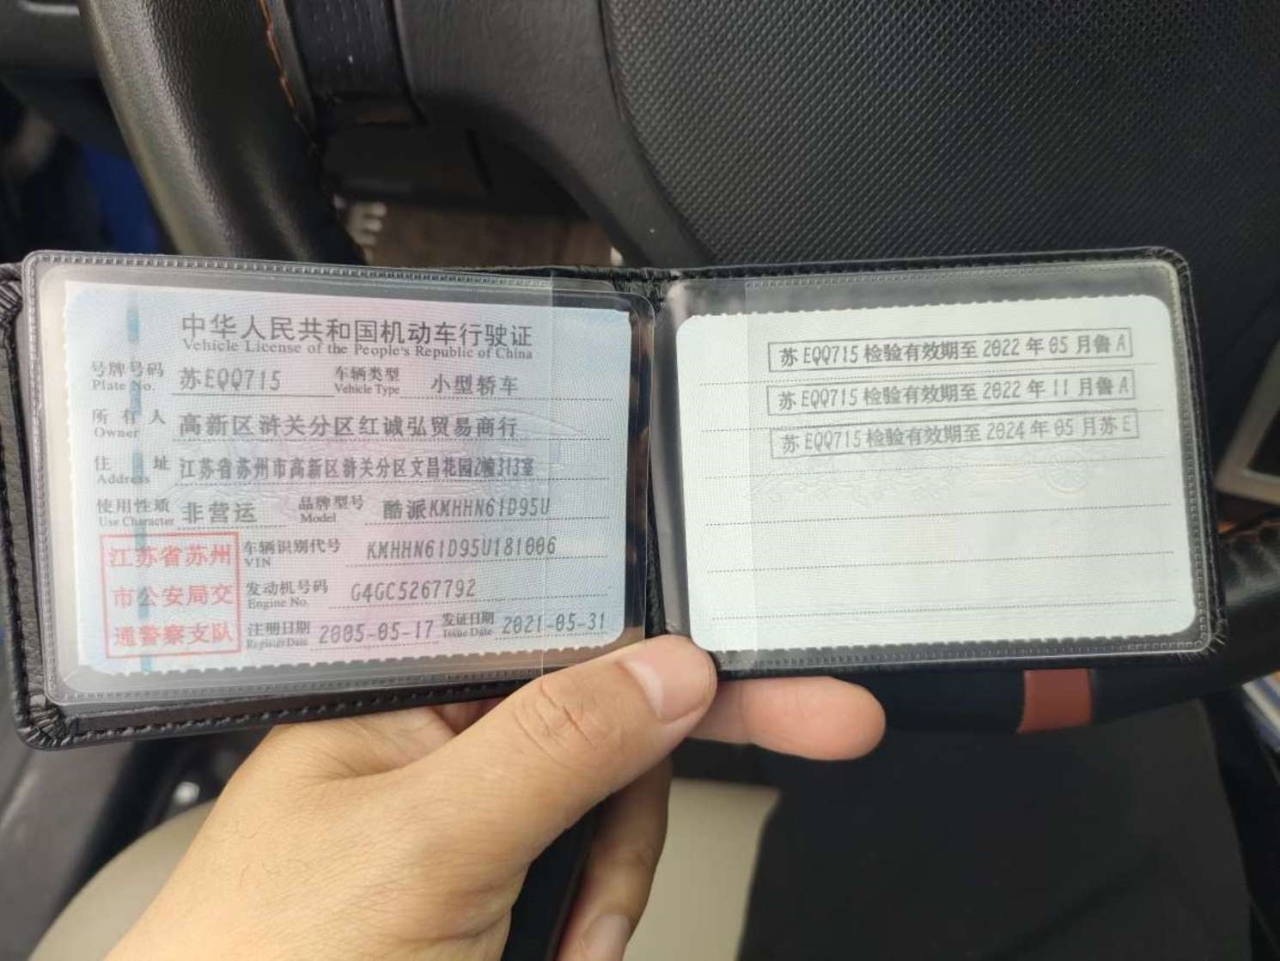 中华人民共和国机动车行驶证
Vehicle License of the People's Republic of China
号牌号码 苏EQQ715 车辆类型 小型轿车
Plate No. Vehicle Type
所有人 高新区浒关分区红诚弘贸易商行
Owner
住址 江苏省苏州市高新区浒关分区文昌花园2幢313室
Address
使用性质 非营运 品牌型号 酷派KMHHN61D95U
Use Character Model
车辆识别代号 KMHHN61D95U181006
VIN
发动机号码 G4GC5267792
Engine No.
注册日期 2005-05-17 发证日期 2021-05-31
Register Date Issue Date
江苏省苏州
市公安局交
通警察支队
苏EQQ715检验有效期至2022年05月鲁A
苏EQQ715检验有效期至2022年11月鲁A
苏EQQ715检验有效期至2024年05月苏E